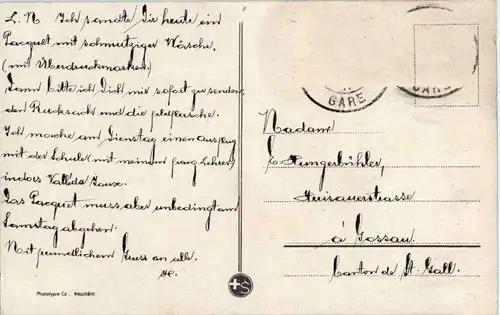 L. N. Ich sandte Dir heute ein
Pacquet mit schmutziger Wäsche.
(mit Überdruckmarken)
Dann bitte ich Dich mir sofort zu senden
den Rucksack und die Feldflasche.
Ich mache am Dienstag einen Ausflug
mit der Schule (mit meinem franz. Lehrer)
in das Vallée de Joux.
Das Pacquet muss aber unbedingt am
Samstag abgehen.
Mit freundlichem Gruss an alle.
GARE
GARE
Madame
Hungerbühler,
Herisauerstrasse
à Gossau.
Canton de St. Gall.
+S
Phototypie Co., Neuchâtel